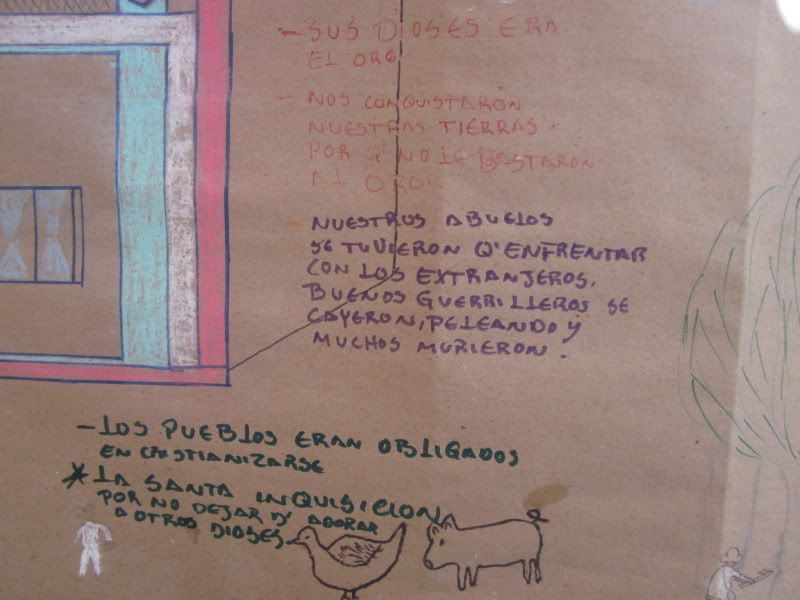 - SUS DIOSES ERA
EL ORO
- NOS CONQUISTARON
NUESTRAS TIERRAS
POR Q' NO LE BASTARON
AL ORO.
- NUESTROS ABUELOS
SE TUVIERON Q' ENFRENTAR
CON LOS EXTRANJEROS.
BUENOS GUERRILLEROS SE
CAYERON, PELEANDO Y
MUCHOS MURIERON.
- LOS PUEBLOS ERAN OBLIGADOS
EN CRISTIANIZARSE
* LA SANTA INQUISICION
POR NO DEJAR D' ADORAR
A OTROS DIOSES